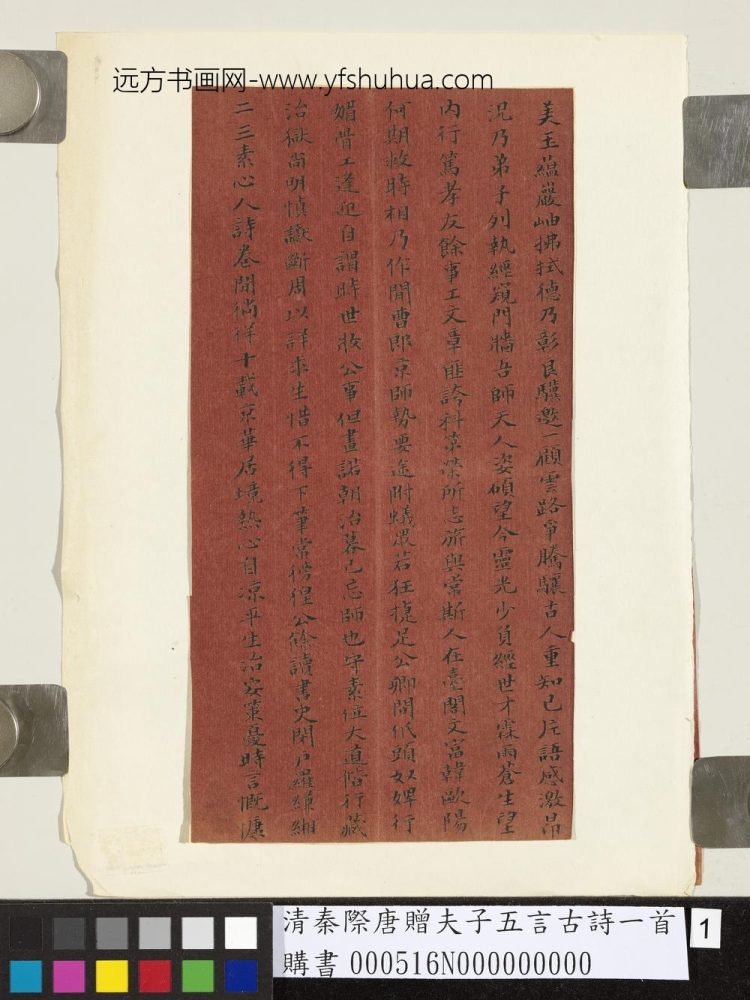 远方书画网-www.yfshuhua.com
美玉蘊巖岫拂拭德乃彰良驥邀一顧雲路爭騰驤古人重知己片語感激昂
況乃弟子列執經窺門牆吾師天人姿碩望今靈光少負經世才霖雨蒼生望
內行篤孝友餘事工文章匪誇科第榮所志旂與常斯人在臺閣文富韓歐陽
何期救時相乃作閒曹郎京師勢要途附蟻眾若狂捷足公卿間低頭奴婢行
媚骨工逢迎自謂時世妝公事但畫諾朝治暮已忘師也守素位大道偕行藏
治獄尚明慎讞斷周以詳求生惜不得下筆常徬徨公餘讀書史閉戶羅縑緗
二三素心人詩卷閒徜徉十載京華居境熱心自涼平生治安策憂時言慨慷
清秦際唐贈夫子五言古詩一首
購書 000516N000000000
1